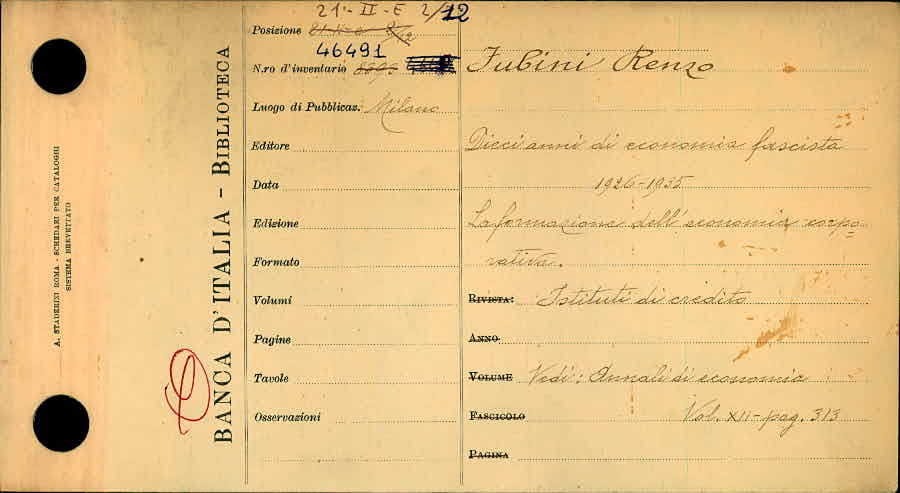 A. STADERINI ROMA - SCHEDARI PER CATALOGHI
SISTEMA BREVETTATO
BANCA D'ITALIA - BIBLIOTECA
21-II-E 2/12
Posizione
46491
N.ro d'inventario
Luogo di Pubblicaz. Milano
Editore
Data
Edizione
Formato
Volumi
Pagine
Tavole
Osservazioni
Fubini Renzo
Dieci anni di economia fascista
1926-1935
La formazione dell'economia corpo=
rativa.
RIVISTA: Istituti di credito
ANNO
VOLUME Vedi: Annali di economia
FASCICOLO Vol. XII - pag. 313
PAGINA